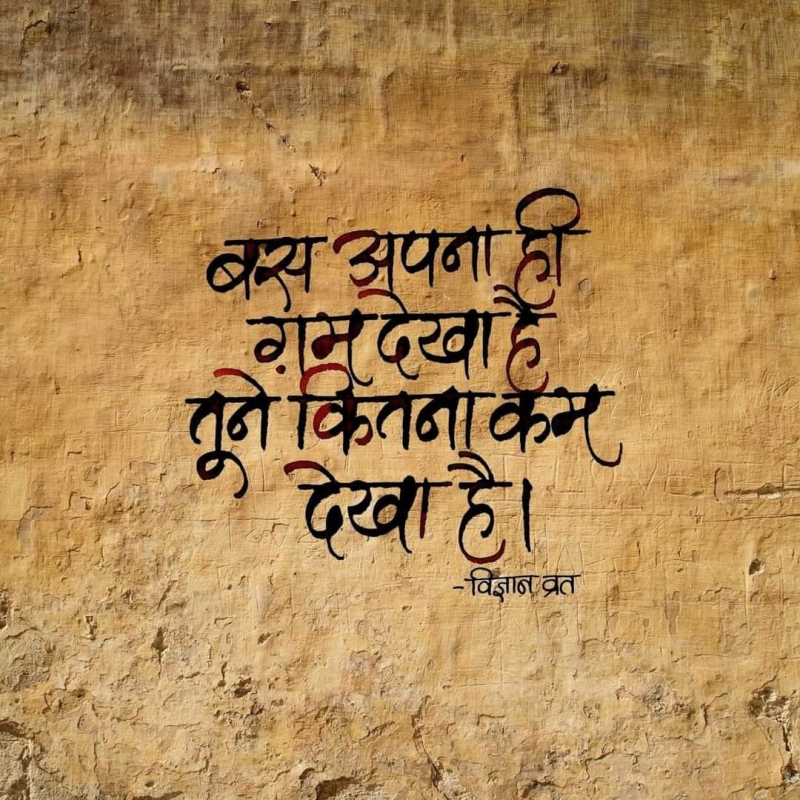 बस अपना ही
ग़म देखा है
तूने कितना कम
देखा है।
-विज्ञान व्रत